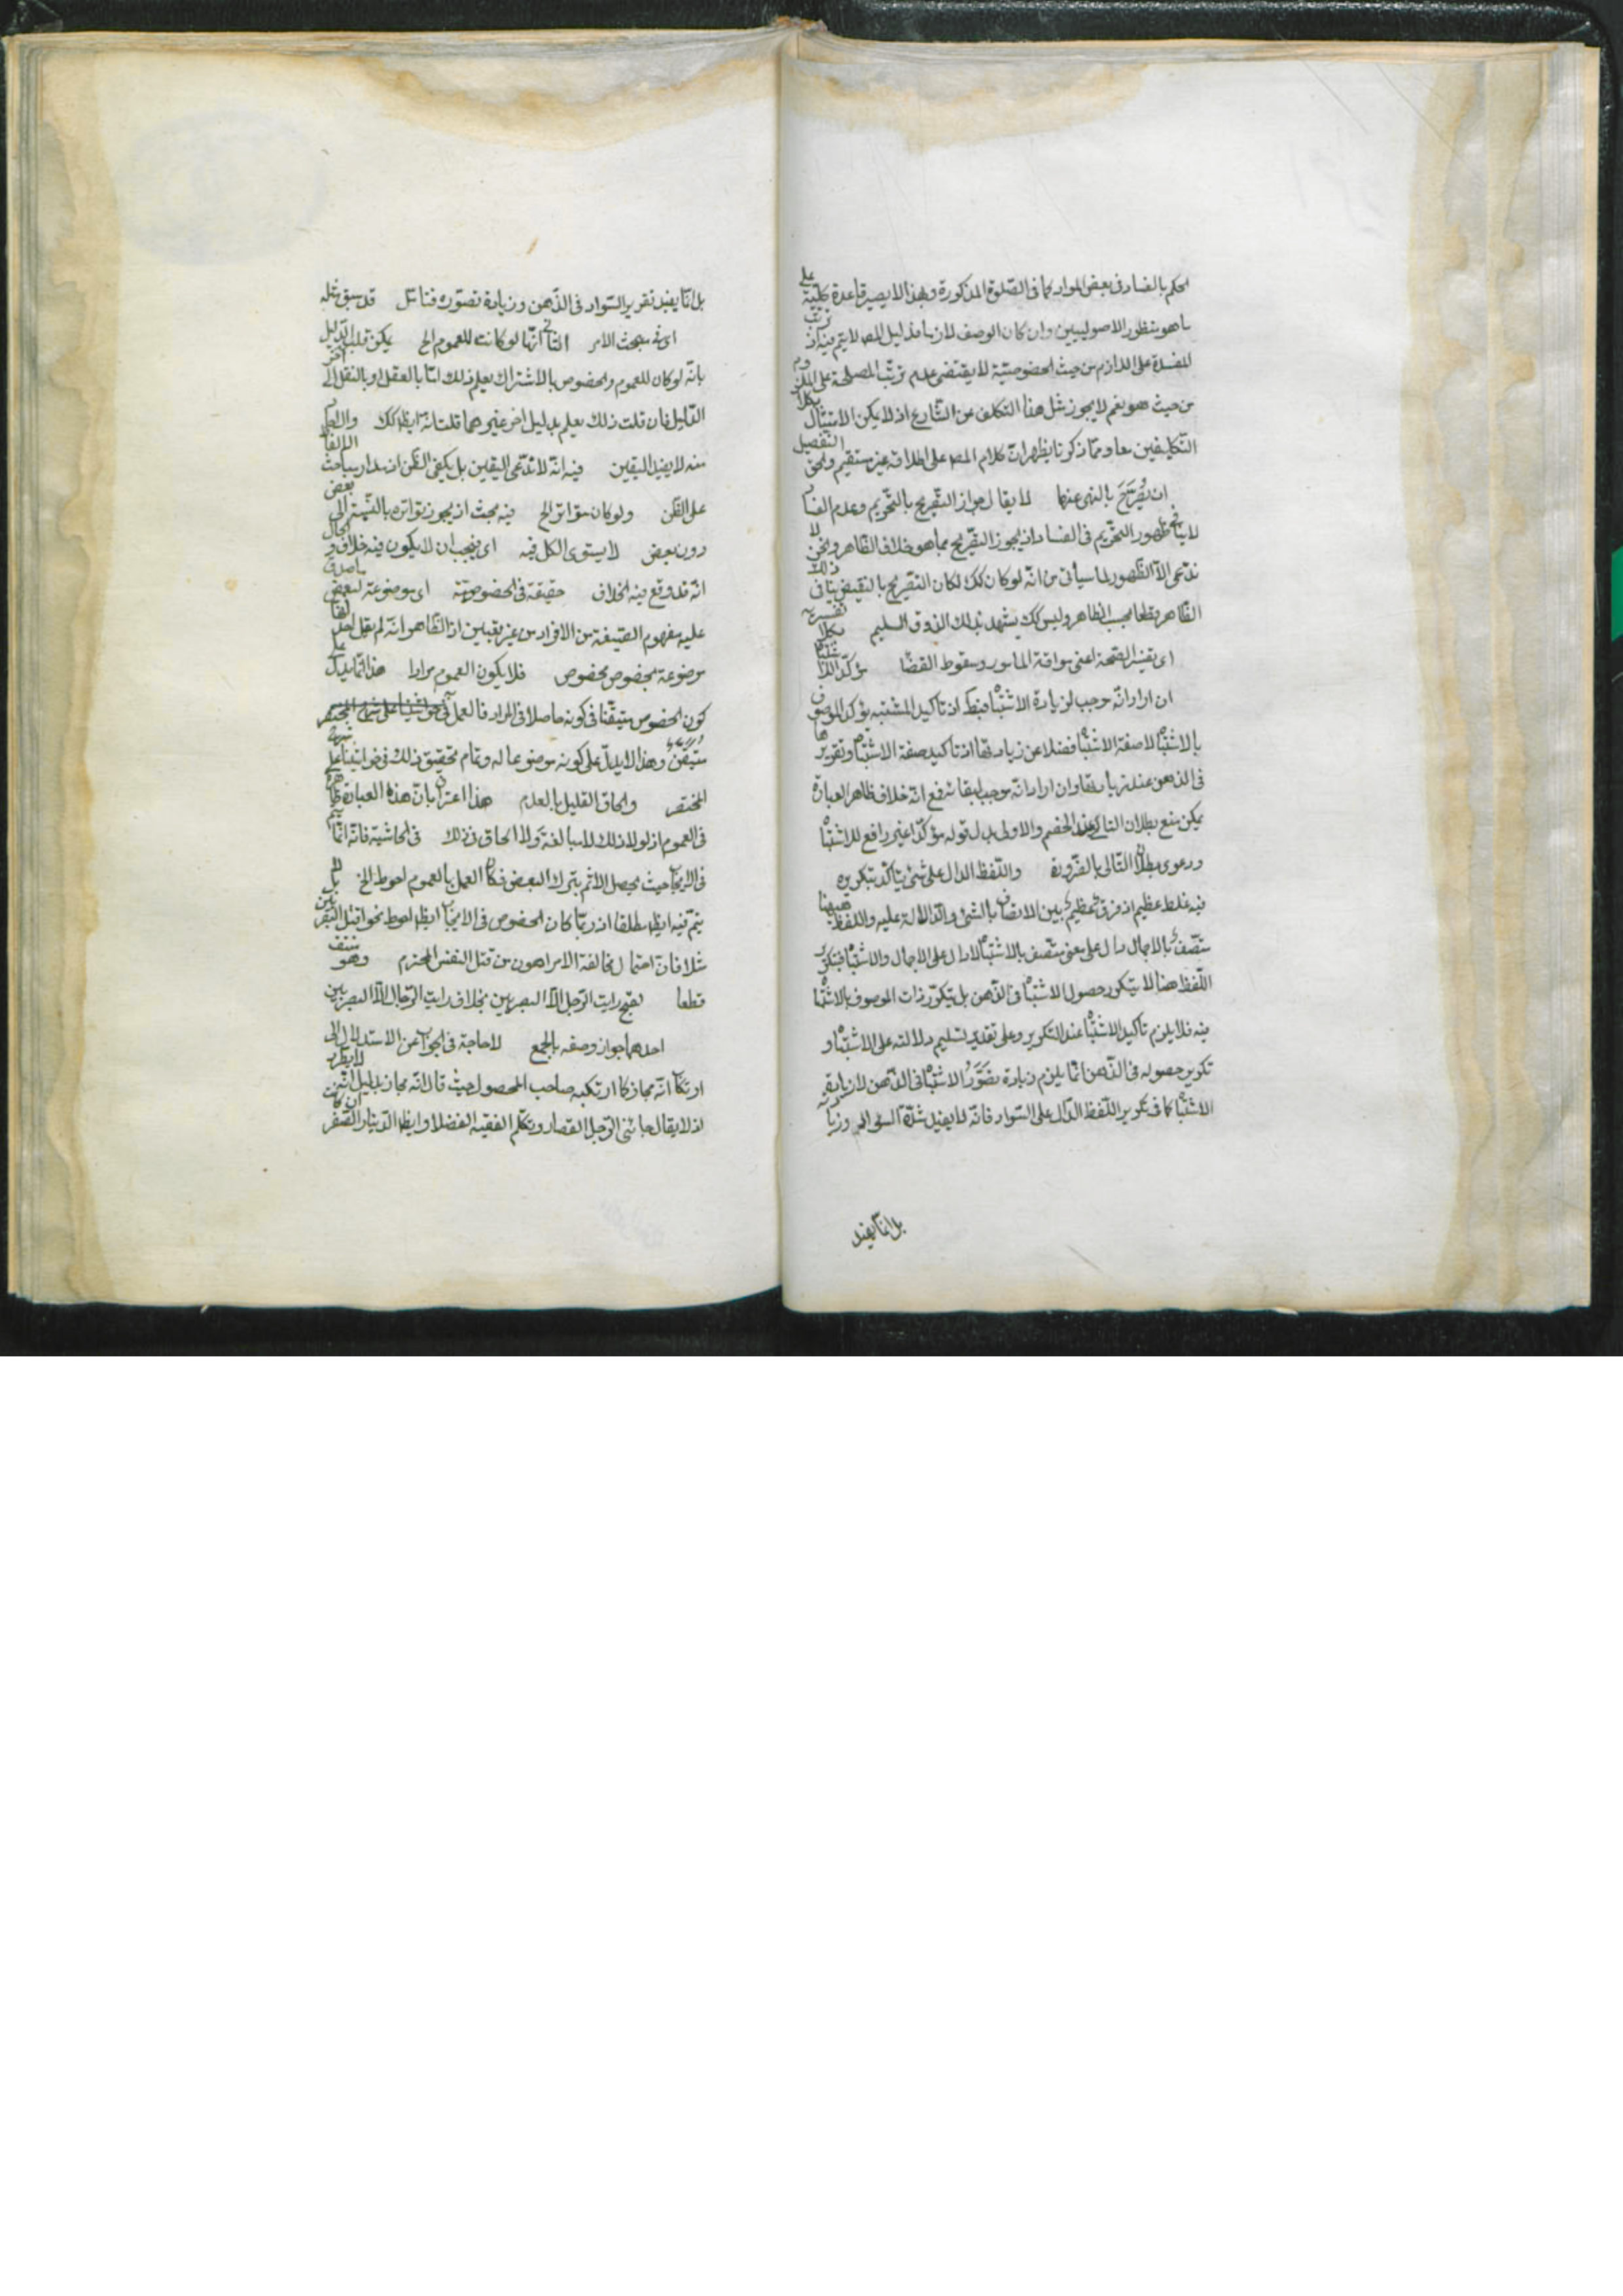 الحكم بالفساد فى بعض الموارد كما فى الصّلوة المذكورة وبهذا لا يصير قاعدة كليّة على
ما هو منظور الاصوليين وان كان الوصف لازما فدليل المص لا يتم فيه اذ ترتب
المفسدة على اللازم من حيث الخصوصيّة لا يقتضى عدم ترتّب المصلحة على الملزوم
من حيث هو نعم لا يجوز مثل هذا التكلف من الشّارع اذ لا يمكن الامتثال بكلا
التّكليفين معا وممّا ذكرنا يظهر انّ كلام المص على اطلاقه غير مستقيم والحق التفصيل
ان يُصَرّحَ بالنهى عنها لا يقال جواز التّصريح بالتّحريم وعدم الفسا
لا ينافى ظهور التحريم فى الفساد اذ يجوز التصريح بما هو خلاف الظاهر ونحن لا
ندعى الا الظهور لما سيأتى من انّه لو كان كك لكان التصريح بالنقيض ينافى ذلك
الظاهر قطعا بحسب الظاهر وليس كك يشهد بذلك الذوق السليم بكلا تفسيريه
اى بتفسير الصّحة اعنى موافقة المامور وسقوط القضا مؤكّدا للا شتبا
ان اراد انّه موجب لزيادة الاشتباه اذ تاكيد المشتبه يؤكد الموصوف
بالاشتباه لا صفة الاشتباه فضلا عن زيادتها اذ تاكيد صفة الاشتباه وتقريرها
فى الذهن عند زيادتها وان اراد انّه موجب لبقائه فمع انّه خلاف ظاهر العبارة
يمكن منع بطلان التالى عند الخصم والاولى بدل قوله مؤكّدا غير رافع للاشتباه
ودعوى بطلان التّالى بالضّرورة واللّفظ الدال على شئ يتأكّد بتكريره
فيه غلط عظيم اذ فرق عظيم بين الاتصاف بالشئ والدّلالة عليه واللفظ ههنا
متّصف بالاجمال دال على معنى متّصف بالاشتباه لا دال على الاجمال والاشتباه فبتكرر
اللّفظ هنا لا يتكرر حصول الاشتباه فى الذّهن بل يتكرّر ذات الموصوف بالاشتباه
فيه فلا يلزم تاكيد الاشتباه عند التكرير وعلى تقدير تسليم دلالته على الاشتباه و
تكرير حصوله فى الذّهن انّما يلزم زيادة تصَوّر الاشتباه فى الذّهن لا زيادة
الاشتباه كما فى تكرير اللّفظ الدّال على السّواد فانّه لا يفيد شدّة السواد وزيادته
بل انّما يفيد
بل انّما يفيد تقرير السّواد فى الذّهن وزيادة تصوّره فتأمّل قد سبق مثله
اى فى مبحث الامر الثانى انّها لو كانت للعموم الخ يمكن قلب الدّليل
بانّه لو كان للعموم والخصوص بالاشتراك يعلم ذلك امّا بالعقل او بالنقل الى اخر
الدّليل فان قلت ذلك يعلم بدليل اخر غيرهما قلت انّه ايضا كك والاحاد
منه لا يفيد اليقين فيه انّه لا ندّعى اليقين بل يكفى الظّن اذ مدار مباحث الالفاظ
على الظّن ولو كان متواترا الخ فيه بحث اذ يجوز تواتره بالنّسبة الى بعض
دون بعض لا يستوى الكل فيه اى فيجب ان لا يكون فيه خلاف والحال
انّه قد وقع فيه الخلاف حقيقة فى الخصوصيّة اى موضوعة لبعض ما صدق
عليه مفهوم الصّيغة من الافراد من غير تعيين اذ الظّاهر انّه لم يقل احد بانها
موضوعة بخصوص مخصوص فلا يكون العموم مرادا هذا انّما يدل على
كون الخصوص متيقّنا فى كونه حاصلا فى المراد فالعمل
متيقّن وهذا لا يدلّ على كونه موضوعا له وتمام تحقيق ذلك فى حواشينا على شرح
المختصر والحاق القليل بالعدم هذا اعتراف بانّ هذه العبارة ظاهرة
فى العموم اذ لولا ذلك لا مبالغة ولا الحاق فى ذلك فى الحاشية فانّه انّما يتم
فى الايجاب حيث يحصل الاثم بترك البعض فكان العمل بالعموم احوط الخ بل لا
يتم فيه ايضا مطلقا اذ ربّما كان الخصوص فى الايجاب ايضا احوط نحو اقتل
مثلا فانّ احتمال مخالفة الامر اهون من قتل النفس المحترم وهو منتف
قطعا لقبح رايت الرّجل الّا البصريين بخلاف رايت الرّجال الّا البصريين
احدهما جواز وصفه بالجمع لا حاجة فى الجواب عن الاستدلال الى
ارتكاب انّه مجاز كما ارتكبه صاحب المحصول حيث قال انّه مجاز بدليل انّه لا يطّرد
اذ لا يقال جائنى الرّجل القصار وتكلّم الفقيه الفضلا وايضا الدّينار الصّفر ان كانت